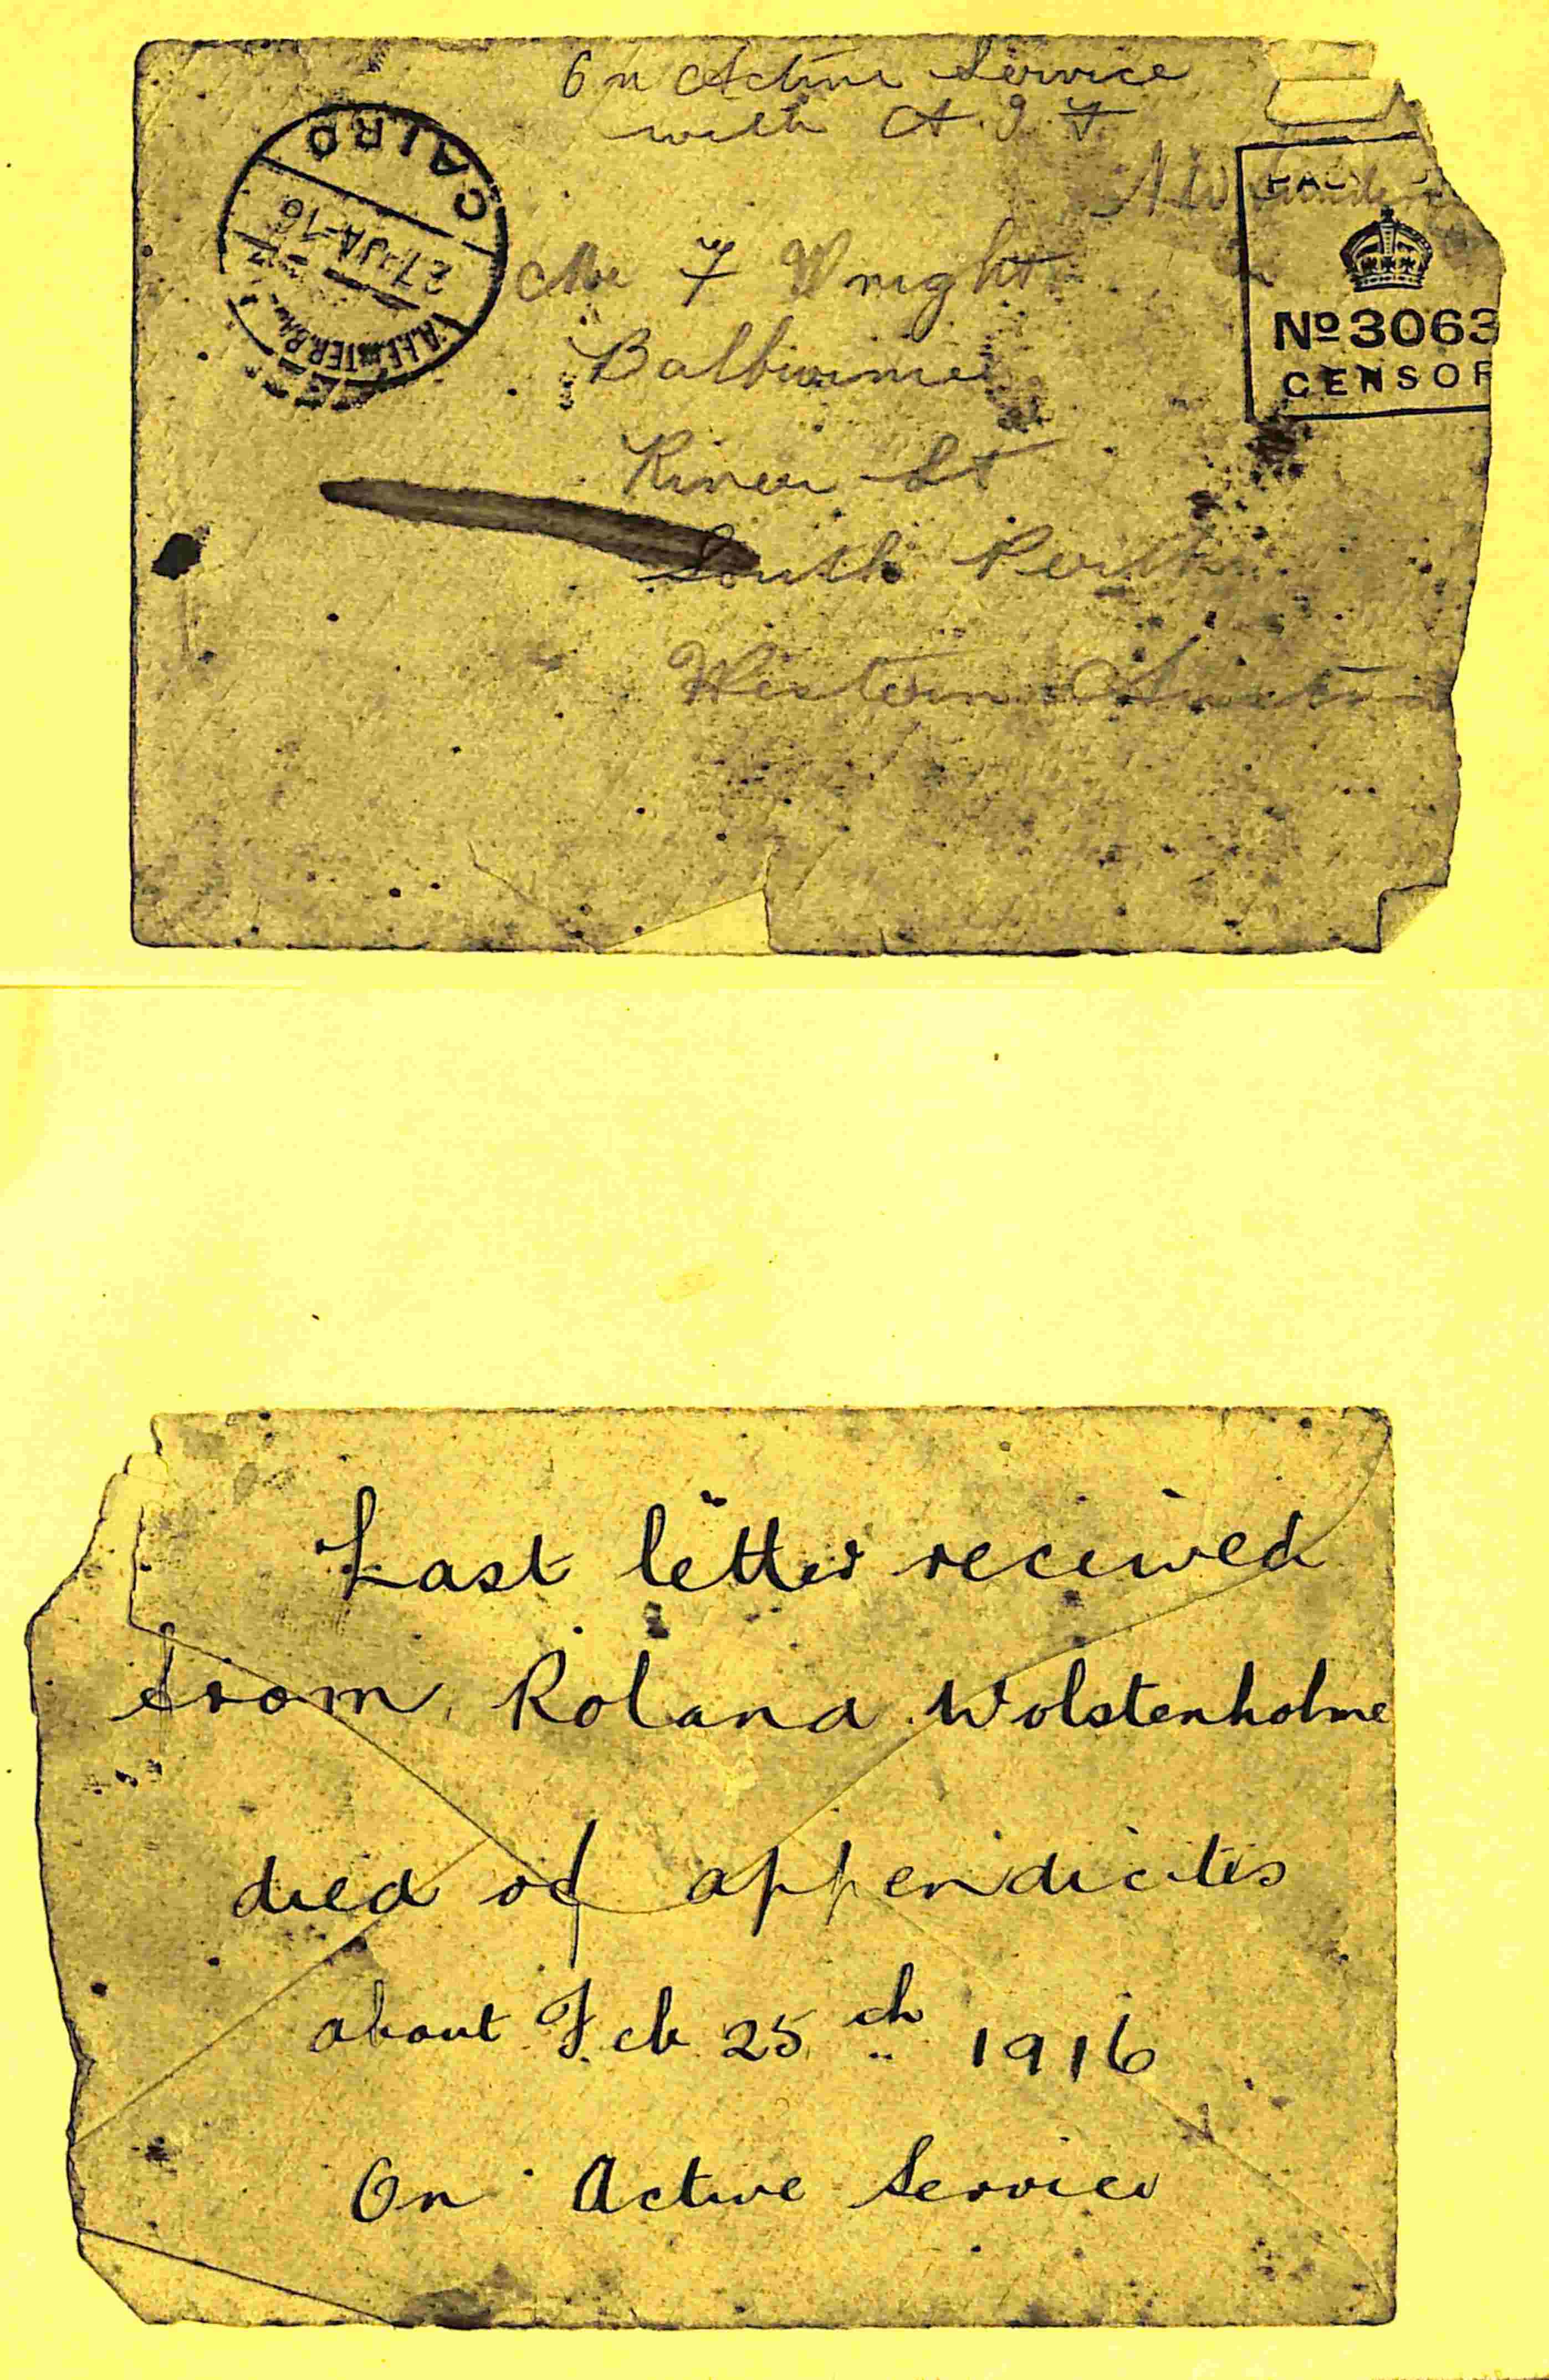 On Active Service
with A.I.F.
CAIRO
27 JA-16
PAS
Nº 3063
CENSOR
Mr F Wright
River St
South Perth
Western Austra
Last letter received
from Roland Wolstenholme
died of appendicites
about Feb 25th 1916
On Active Service